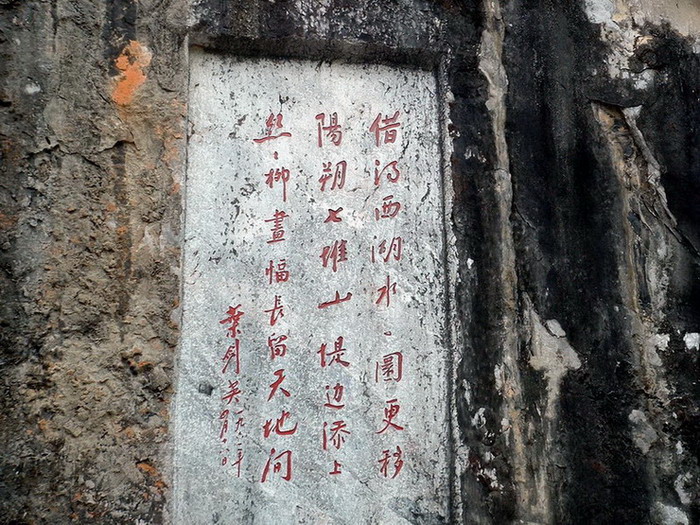 借得西湖水一圜更移
陽朔七堆山堤边添上
丝々柳畫幅長留天地间
葉剑英